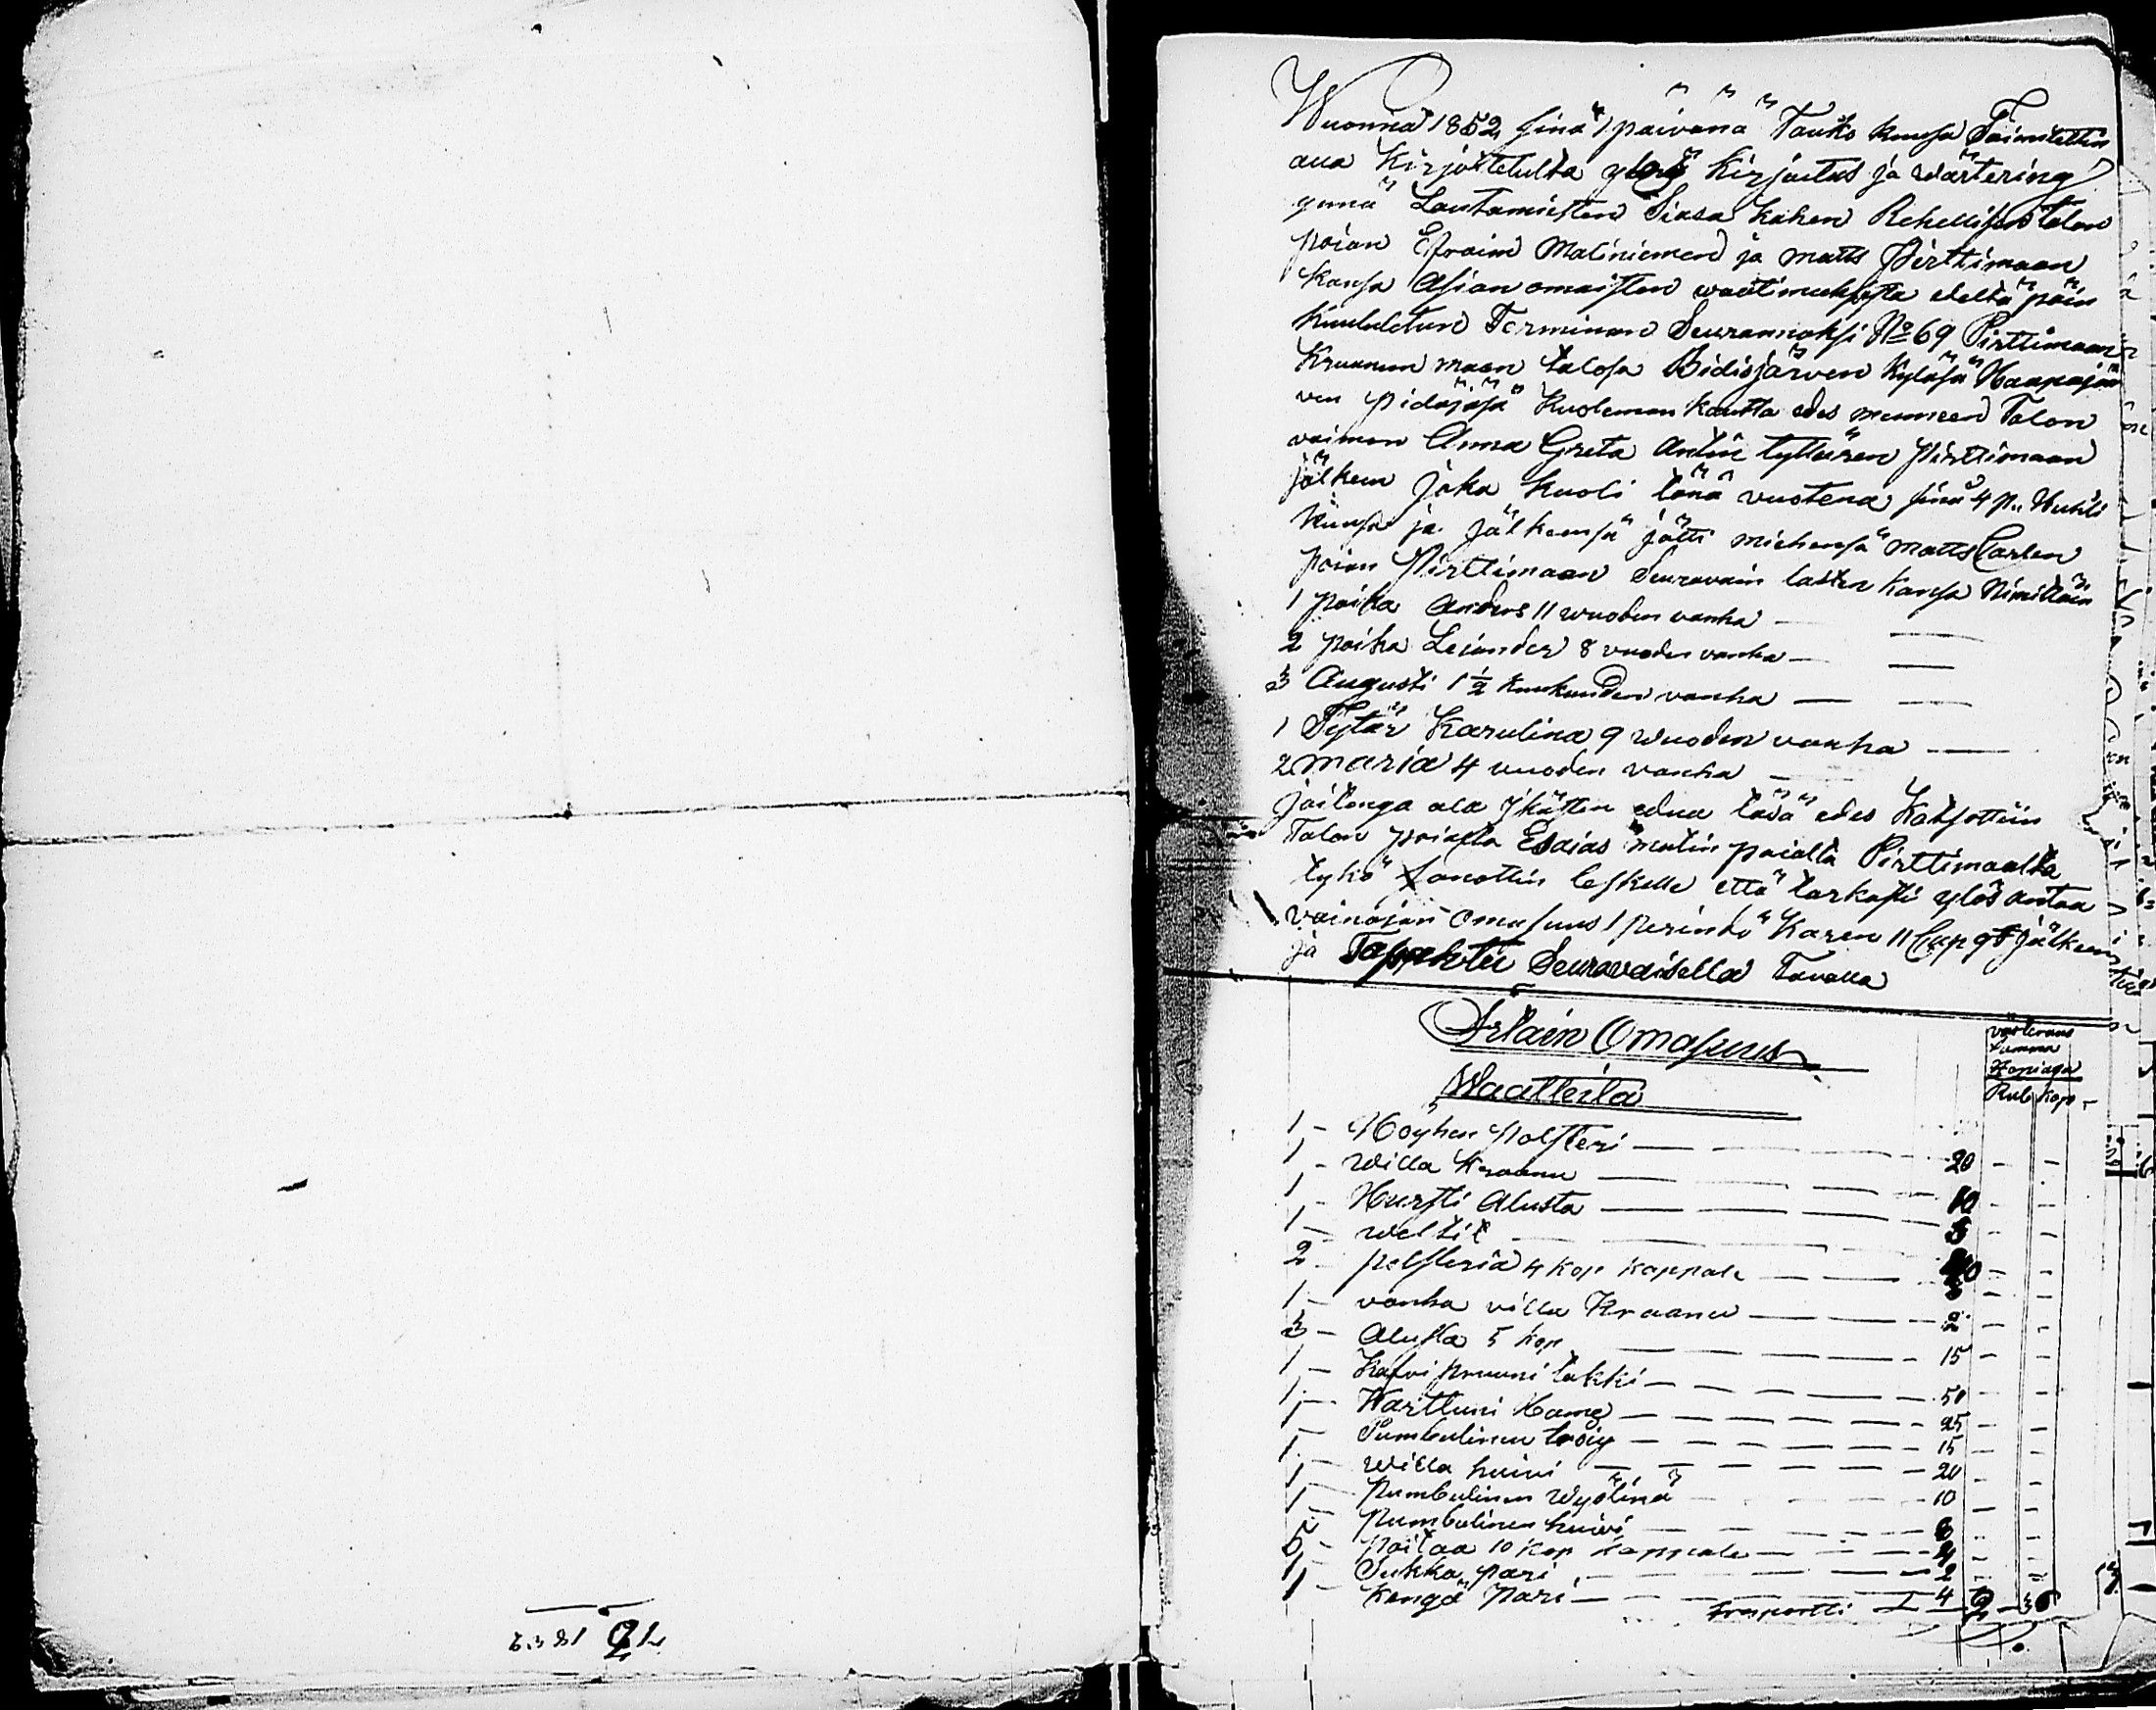 Wuonna 1852 sinä 1 päivänä Tauko kuusa Toimitettin
alla Kirjoitetulta ylös Kirjoitus ja wärtering
ynnä Lautamiesten Siasa kahen Rehellisen talon
poian Efraim Matiniemen ja matts Pirttimaan
kansa Asian omaisten waatimuksesta edeltä päin
kuulutetun Terminan Seurannoksi No 69 Pirttimaan
Kruunun maan talosa Pidisjärven kyläsä Haapajär
ven pidäjäsä Kuoleman kautta edes menneen Talon
vaimon Anna Greta Antin tyttären Pirttimaan
jälkeen joka kuoli tänä vuotena sinä 4 p. Huhti
kuusa ja jälkeensä jätti miehensä matts Carlen
poian Pirttimaan Seuravain lasten kansa Nimittäin
1 poika Anders 11 wuoden vanha
2 poika Leiander 8 vuoden vanha
3 Augusti 1½ kuukauden vanha
1 Tytär Karulina 9 wuoden vanha
2 maria 4 vuoden vanha
joitenga ala ikäisten edua täsä edes Katsottiin
Talon poialta Esaias matin poialta Pirttimaalta
tykö sanottiin leskelle että tarkasti ylös antaa
vainajan omasuus perindö Karen 11 Cap 9 § jälkeen
ja Tapahtu Seuravaisella Tavalla
Irtain Omasuus
värteraus
summa
Hopiasa
Rub Kop
Waatteita
1 - Höyhen Polsteri 20
1 - Willa kraanu 10
1 - Hursti Alusta
1 - welti
2 - polsteria 4 kop kappale
1 - vanha villa Kraanu 2
3 - Alusta 5 kop 15
1 - Kasvi pruuni takki 50
1 - Karttuni Hame 25
1 - Pumbulinen tröiy 15
1 - willa huivi 20
1 - Pumbulinen wyölinä 10
1 - Pumbulinen huivi
5 - paitaa 10 kop kappale
1 - Sukka pari 2
1 - kengä pari 4
Trasportti 2 36